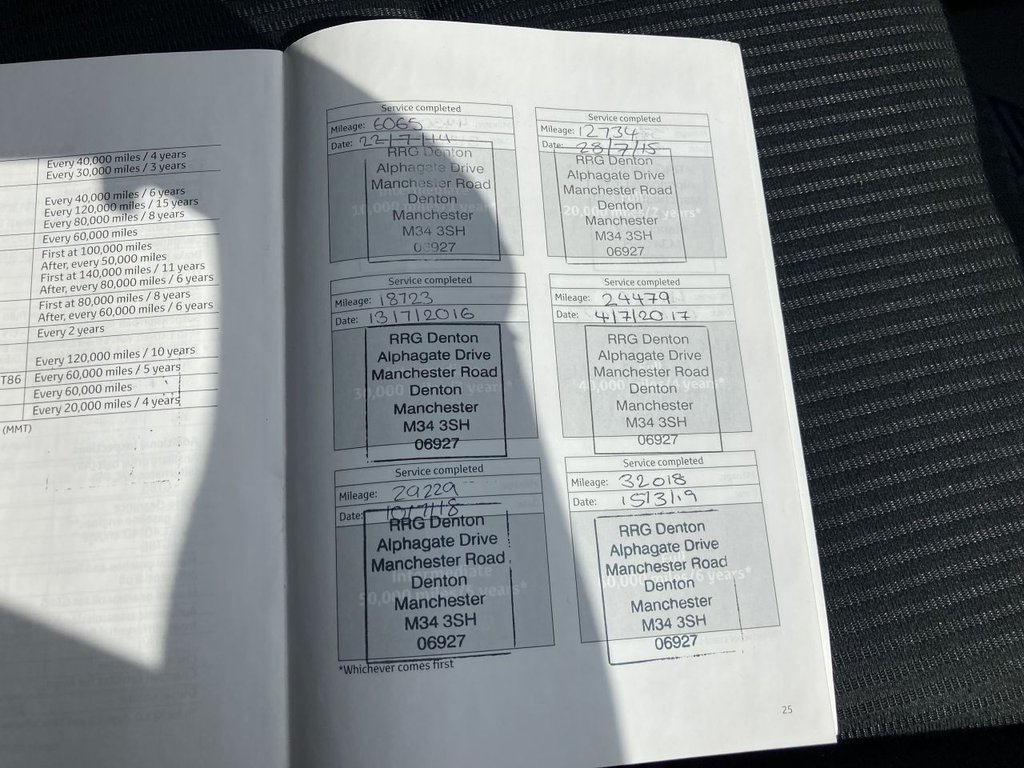 Every 40,000 miles / 4 years
Every 30,000 miles / 3 years
Every 40,000 miles / 6 years
Every 120,000 miles / 15 years
Every 80,000 miles / 8 years
Every 60,000 miles
First at 100,000 miles
After, every 50,000 miles
First at 140,000 miles / 11 years
After, every 80,000 miles / 6 years
First at 80,000 miles / 8 years
After, every 60,000 miles / 6 years
Every 2 years
Every 120,000 miles / 10 years
T86 Every 60,000 miles / 5 years
Every 60,000 miles
Every 20,000 miles / 4 years
(MMT)
Service completed
Mileage: 6065
Date: 22/7/14
RRG Denton
Alphagate Drive
Manchester Road
Denton
Manchester
M34 3SH
06927
Service completed
Mileage: 12734
Date: 28/7/15
RRG Denton
Alphagate Drive
Manchester Road
Denton
Manchester
M34 3SH
06927
Service completed
Mileage: 18723
Date: 13/7/2016
RRG Denton
Alphagate Drive
Manchester Road
Denton
Manchester
M34 3SH
06927
Service completed
Mileage: 24479
Date: 4/7/2017
RRG Denton
Alphagate Drive
Manchester Road
Denton
Manchester
M34 3SH
06927
Service completed
Mileage: 29229
Date: 10/7/18
RRG Denton
Alphagate Drive
Manchester Road
Denton
Intermediate
Manchester
M34 3SH
06927
Service completed
Mileage: 32018
Date: 15/3/19
RRG Denton
Alphagate Drive
Manchester Road
Denton
Manchester
M34 3SH
06927
*Whichever comes first
25